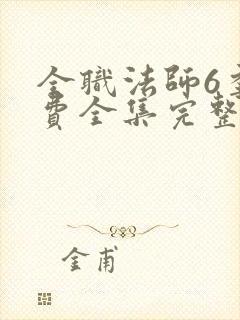 全職法師6
費全集完整
金甫